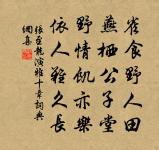 雀食野人田
燕棲公子堂
野情飢亦樂
依人難久長
張至龍演雅十章詞典
網集